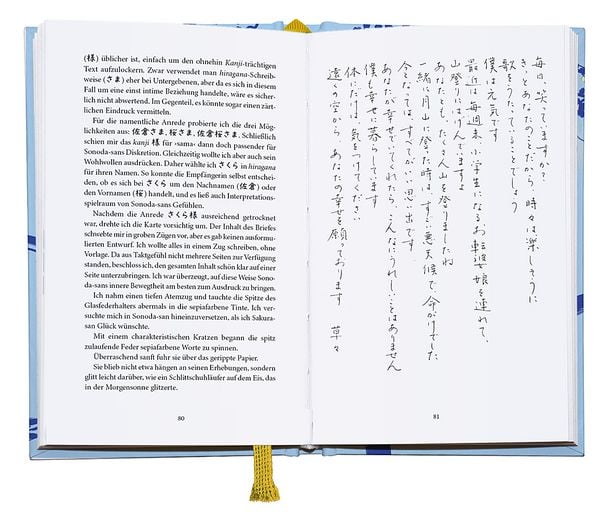 (様) üblicher ist, einfach um den ohnehin Kanji-trächtigen
Text aufzulockern. Zwar verwendet man hiragana-Schreib-
weise (さま) eher bei Untergebenen, aber da es sich in diesem
Fall um eine enst intime Beziehung handelte, wäre es sicher-
lich nicht abwertend. Im Gegenteil, es könnte sogar einen zärt-
lichen Eindruck vermitteln.
Für die namentliche Anrede probierte ich die drei Mög-
lichkeiten aus: 佐倉さま, 桜さま, 佐倉桜さま. Schließlich
schien mir das kanji 様 für ›sama‹ dann doch passender für
Sonoda-sans Diskretion. Gleichzeitig wollte ich aber auch sein
Wohlwollen ausdrücken. Daher wählte ich さくら in hiragana
für ihren Namen. So konnte die Empfängerin selbst entschei-
den, ob es sich bei さくら um den Nachnamen (佐倉) oder
den Vornamen (桜) handelt, und es ließ auch Interpretations-
spielraum von Sonoda-sans Gefühlen.
Nachdem die Anrede さくら様 ausreichend getrocknet
war, drehte ich die Karte vorsichtig um. Der Inhalt des Briefes
schwebte mir in groben Zügen vor, aber es gab keinen ausformu-
lierten Entwurf. Ich wollte alles in einem Zug schreiben, ohne
Vorlage. Da aus Taktgefühl nicht mehrere Seiten zur Verfügung
standen, beschloss ich, den gesamten Inhalt schön klar auf einer
Seite unterzubringen. Ich war überzeugt, auf diese Weise Sono-
da-sans innere Bewegtheit am besten zum Ausdruck zu bringen.
Ich nahm einen tiefen Atemzug und tauchte die Spitze des
Glasfederhalters abermals in die sepiafarbene Tinte. Ich ver-
suchte mich in Sonoda-san hineinzuversetzen, als ich Sakura-
san Glück wünschte.
Mit einem charakteristischen Kratzen begann die spitz
zulaufende Feder sepiafarbene Worte zu spinnen.
Überraschend sanft fuhr sie über das gerippte Papier.
Sie blieb nicht etwa hängen an seinen Erhebungen, sondern
glitt leicht darüber, wie ein Schlittschuhläufer auf dem Eis, das
in der Morgensonne glitzerte.
80
毎日、笑ってますか?
きっとあなたのことだから、時々は楽しそうに
歌をうたっていることでしょう
僕は元気です
最近は毎週末、小学生になるお転婆娘を連れて、
山登りにはげんでますよ
あなたとも、たくさん山を登りましたね
一緒に月山に登った時は、すごい悪天候で、命がけでした
今となっては、すべてがいい思い出です。
あなたが幸せでいてくれたら、こんなにうれしいことはありません
僕も幸せに暮らしています
体にだけは、気をつけてください
遠くの空から あなたの幸せを願っております 草々
81